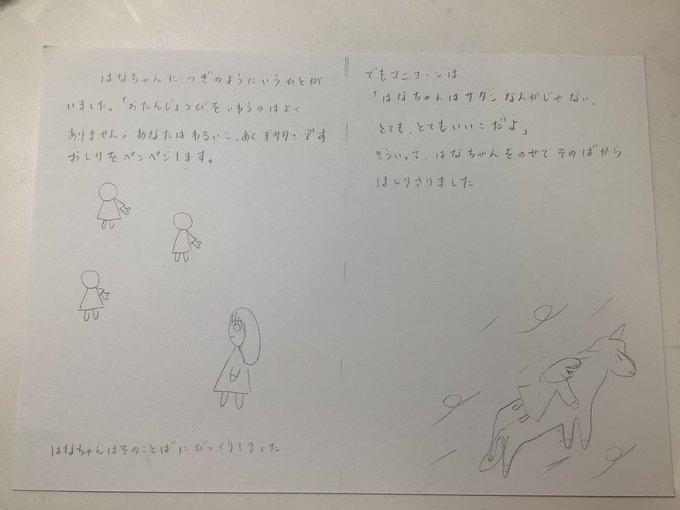 はなちゃんに つぎのようにいうひとが
いました。「おたんじょうびをいわうのはよく
ありません」あなたはわるいこ、あくまサタンです
おしりをペンペンします。
はなちゃんはそのことばにびっくりしました
でもユニコーンは
「はなちゃんはサタンなんかじゃない、
とても、とてもいいこだよ」
そういって、はなちゃんをのせてそのばから
はしりさりました